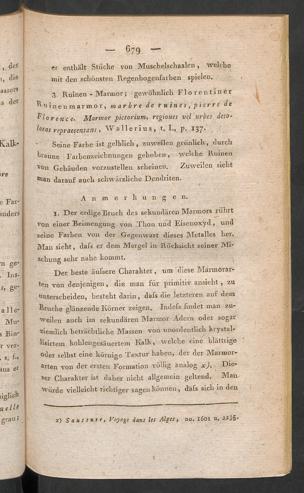 — 679 —
es enthält Stücke von Muschelschaalen, welche
mit den schönsten Regenbogenfarben spielen.
3 Ruinen-Marmor; gewöhnlich Florentiner
Ruinenmarmor, marbre de ruines, pierre de
Florence. Marmor pictorium, regiones vel urbes deso-
latas repraesentans, Wallerius, t. I., p. 137.
Seine Farbe ist gelblich, zuweilen grünlich, durch
braune Farbenzeichnungen gehoben, welche Ruinen
von Gebäuden vorzustellen scheinen. Zuweilen sieht
man darauf auch schwärzliche Dendriten.
Anmerkungen.
1. Der erdige Bruch des sekundären Marmors rührt
von einer Beimengung von Thon und Eisenoxyd, und
seine Farben von der Gegenwart dieses Metalles her.
Man sieht, dafs er dem Mergel in Rücksicht seiner Mi-
schung sehr nahe kommt.
Der beste äufsere Charakter, um diese Marmorar-
ten von denjenigen, die man für primitiv ansieht, zu
unterscheiden, besteht darin, dafs die letzteren auf dem
Bruche glänzende Körner zeigen. Indefs findet man zu-
weilen auch im sekundären Marmor Adern oder sogar
ziemlich beträchtliche Massen von unordentlich krystal-
lisirtem kohlengesäuertem Kalk, welche eine blättrige
oder selbst eine körnige Textur haben, der der Marmor-
arten von der ersten Formation völlig analog x). Die-
ser Charakter ist daher nicht allgemein geltend. Man
würde vielleicht richtiger sagen können, dafs sich in den
x) Saussure, Voyage dans les Alpes, no. 1601 u. 2235.